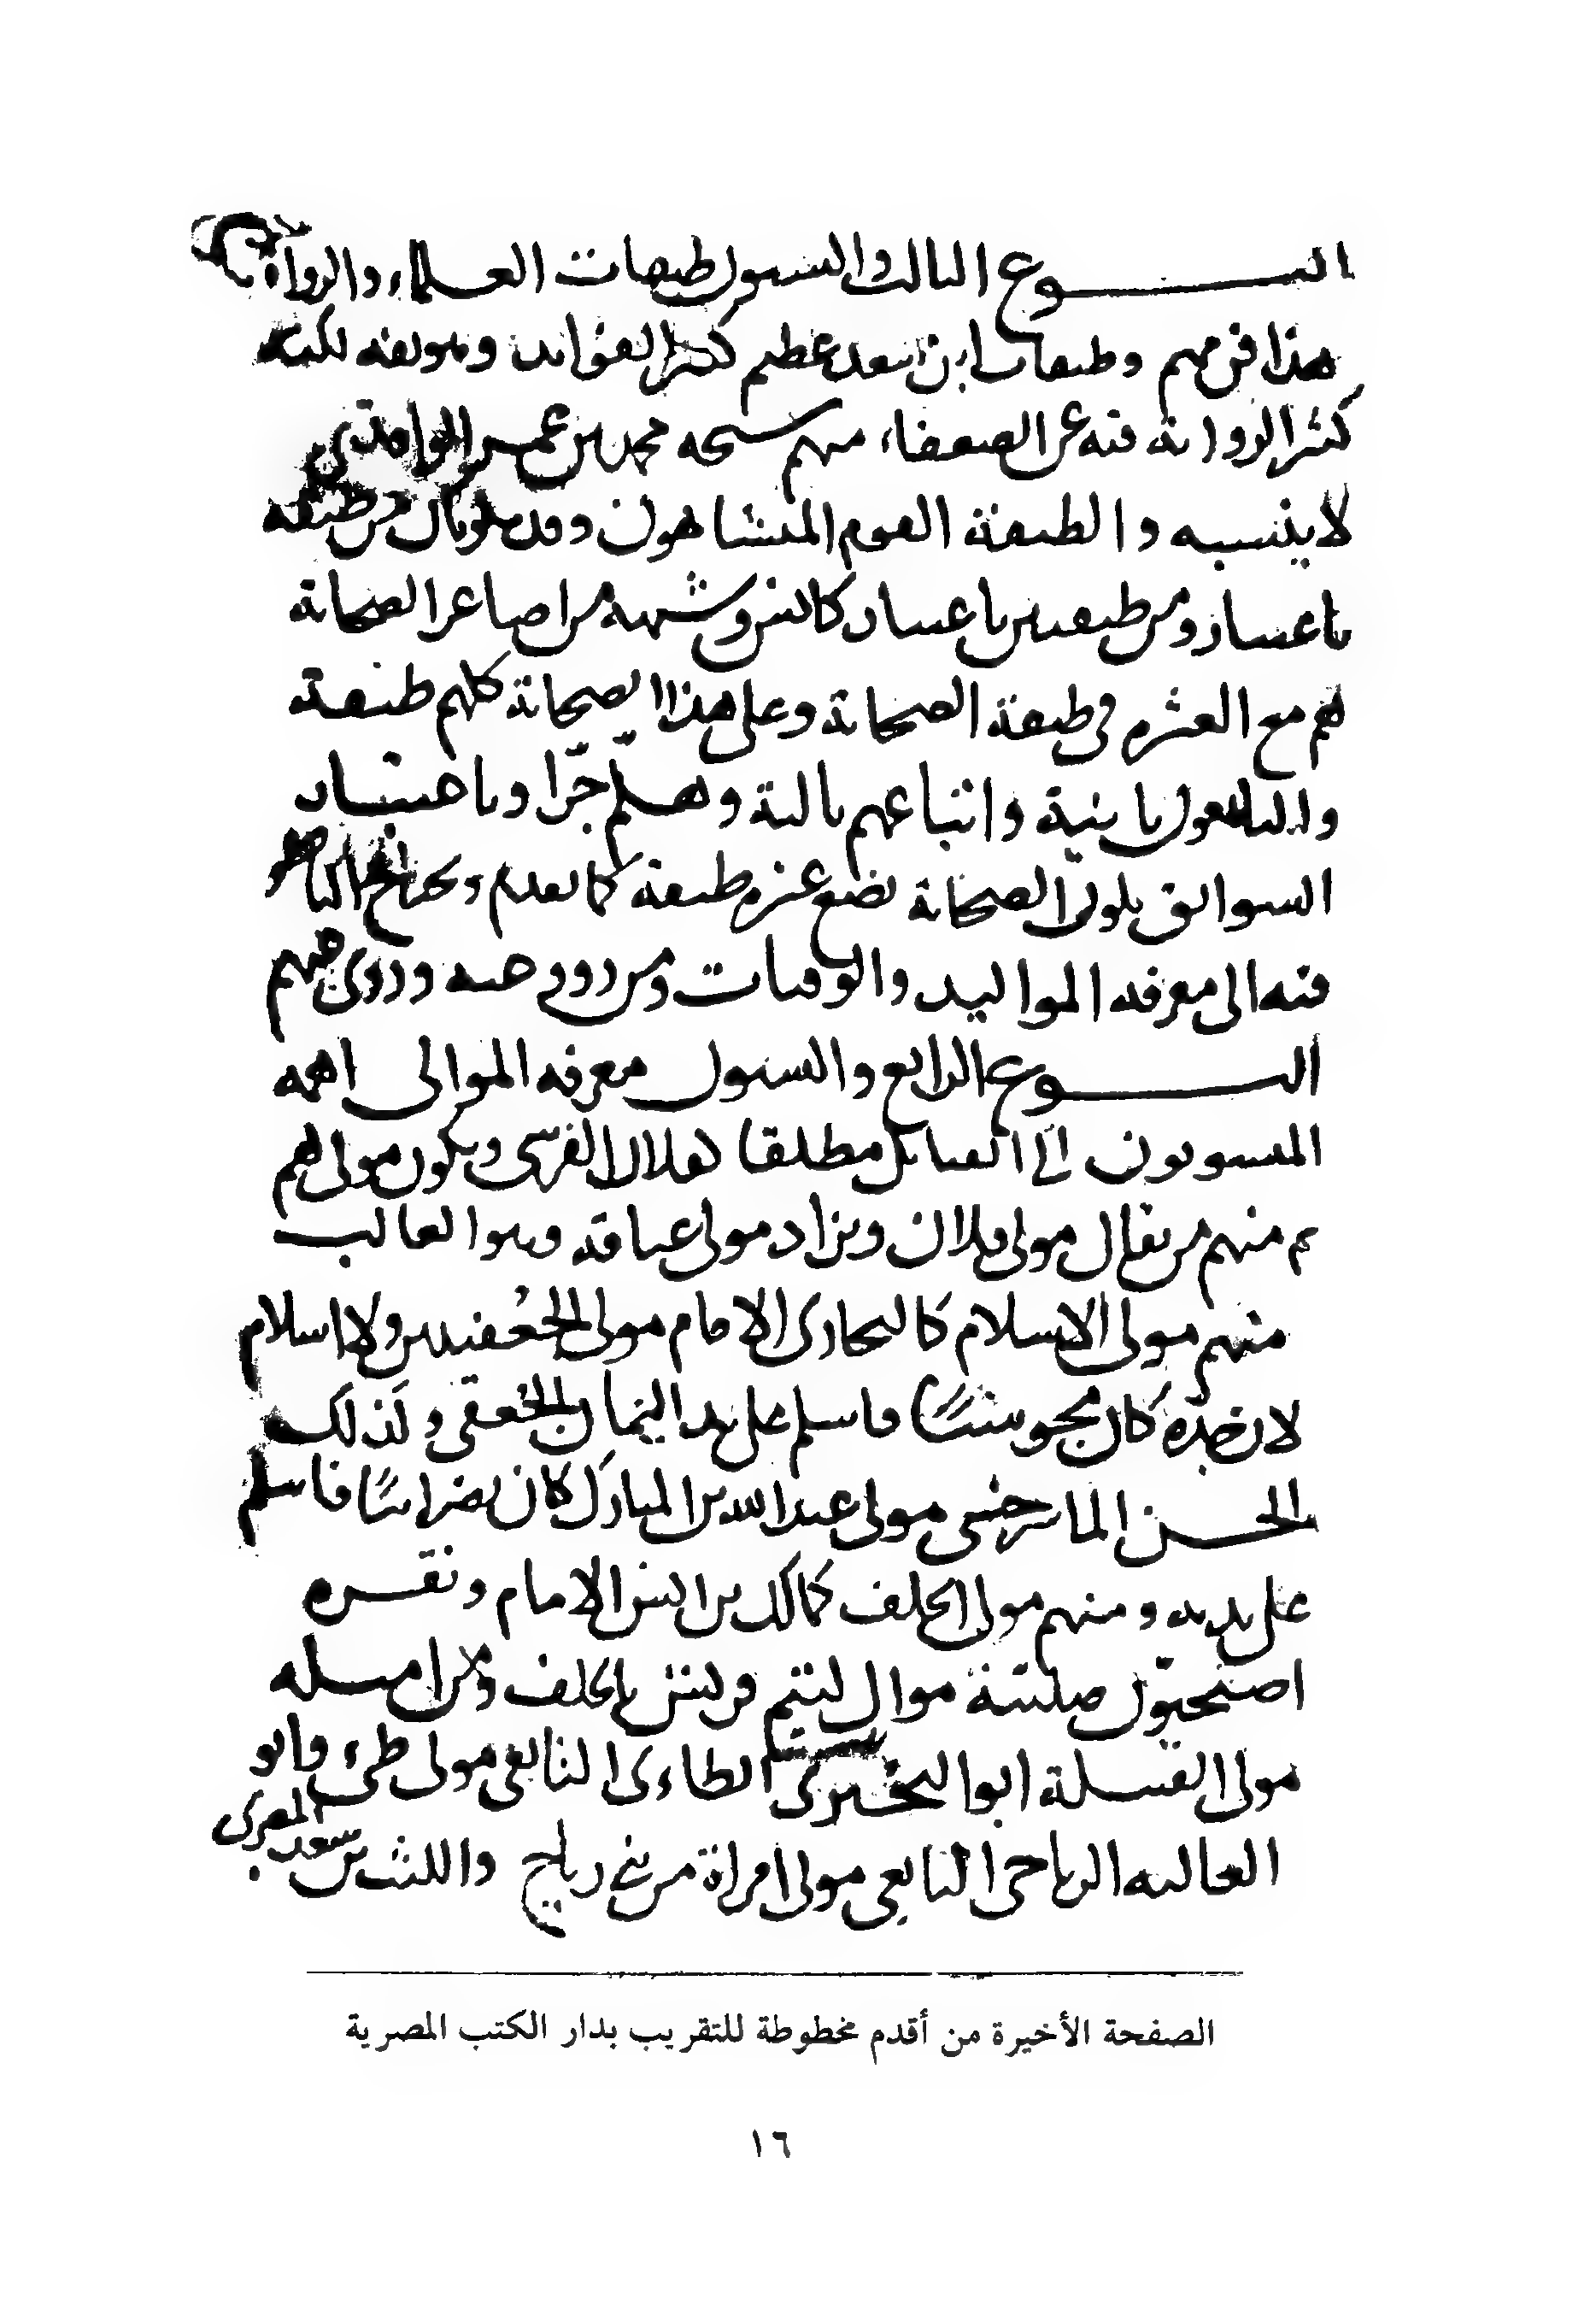 النــــوع الثالث والستون طبقات العلماء والرواة
هذا فن مهم وطبقات ابن سعد عظيم كثير الفوائد وهو ثقة لكنه
كثير الرواية فيه عن الضعفاء منهم شيخه محمد بن عمر الواقدي
لا ينسبه والطبقة القوم المتشابهون وقد يكونان من طبقة
باعتبار ومن طبقتين باعتبار كانس وشبهه من اصاغر الصحابة
هم مع العشره في طبقة الصحابة وعلى هذا الصحابة كلهم طبقة
والتابعون ثانية واتباعهم ثالثة وهلمّ جرّا وباعتبار
السوابق يكون الصحابة بضع عشره طبقة كما تقدم ويحتاج الناظر
فيه الى معرفه المواليد والوفيات ومن رووا عنه وروى عنهم
النــــوع الرابع والستون معرفه الموالى اهمه
المنسوبون الى القبائل مطلقا كفلان القرشى ويكون مولى لهم
ثم منهم من يقال مولى فلان ويراد مولى عتاقه وهوا لغالب
منهم مولى الاسلام كالبخارى الامام مولى الجُعفيين ولا اسلام
لان جدّه كان مجوسيًا فاسلم على يد اليمان الجعفى وكذلك
الحسن الماسرجسى مولى عبد الله بن المبارك كان نصرانيًا فاسلم
على يديه ومنهم مولى الحلف كمالك بن انس الامام ونفــره
اصبحيّون صليبة موال لتيم قريش بالحلف ومن امثله
مولى القبيلة ابوالبختَرى الطاءى التابعى مولى طىء وابو
العاليه الرياحى التابعى مولى امراة من بنى رياح والليث بن سعد المصرى
الصفحة الأخيرة من أقدم مخطوطة للتقريب بدار الكتب المصرية
١٦